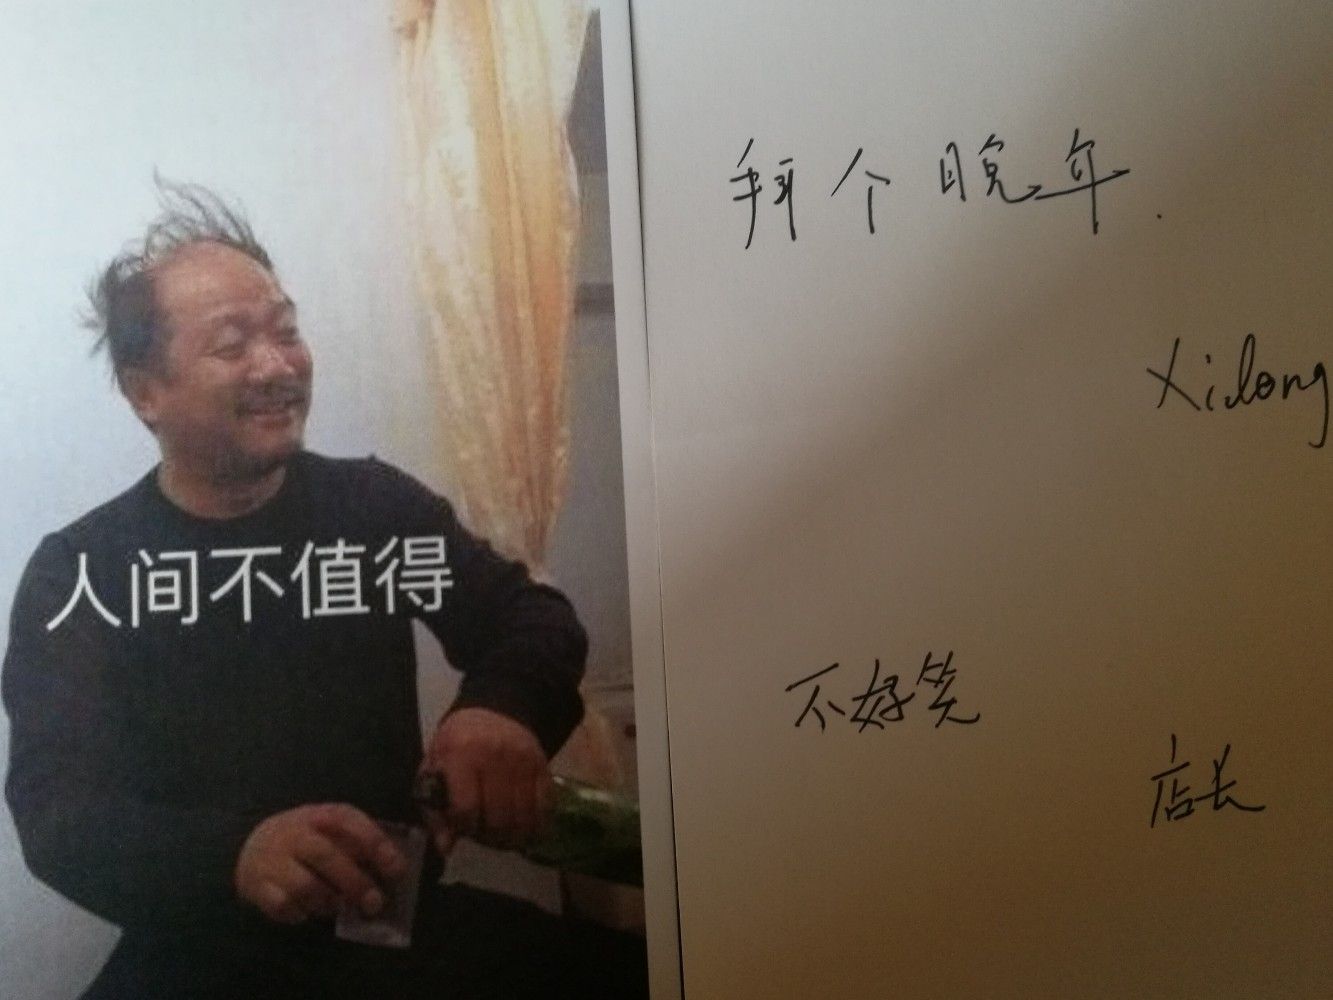 人间不值得
拜个晚年.
Xilong
不好笑
店长